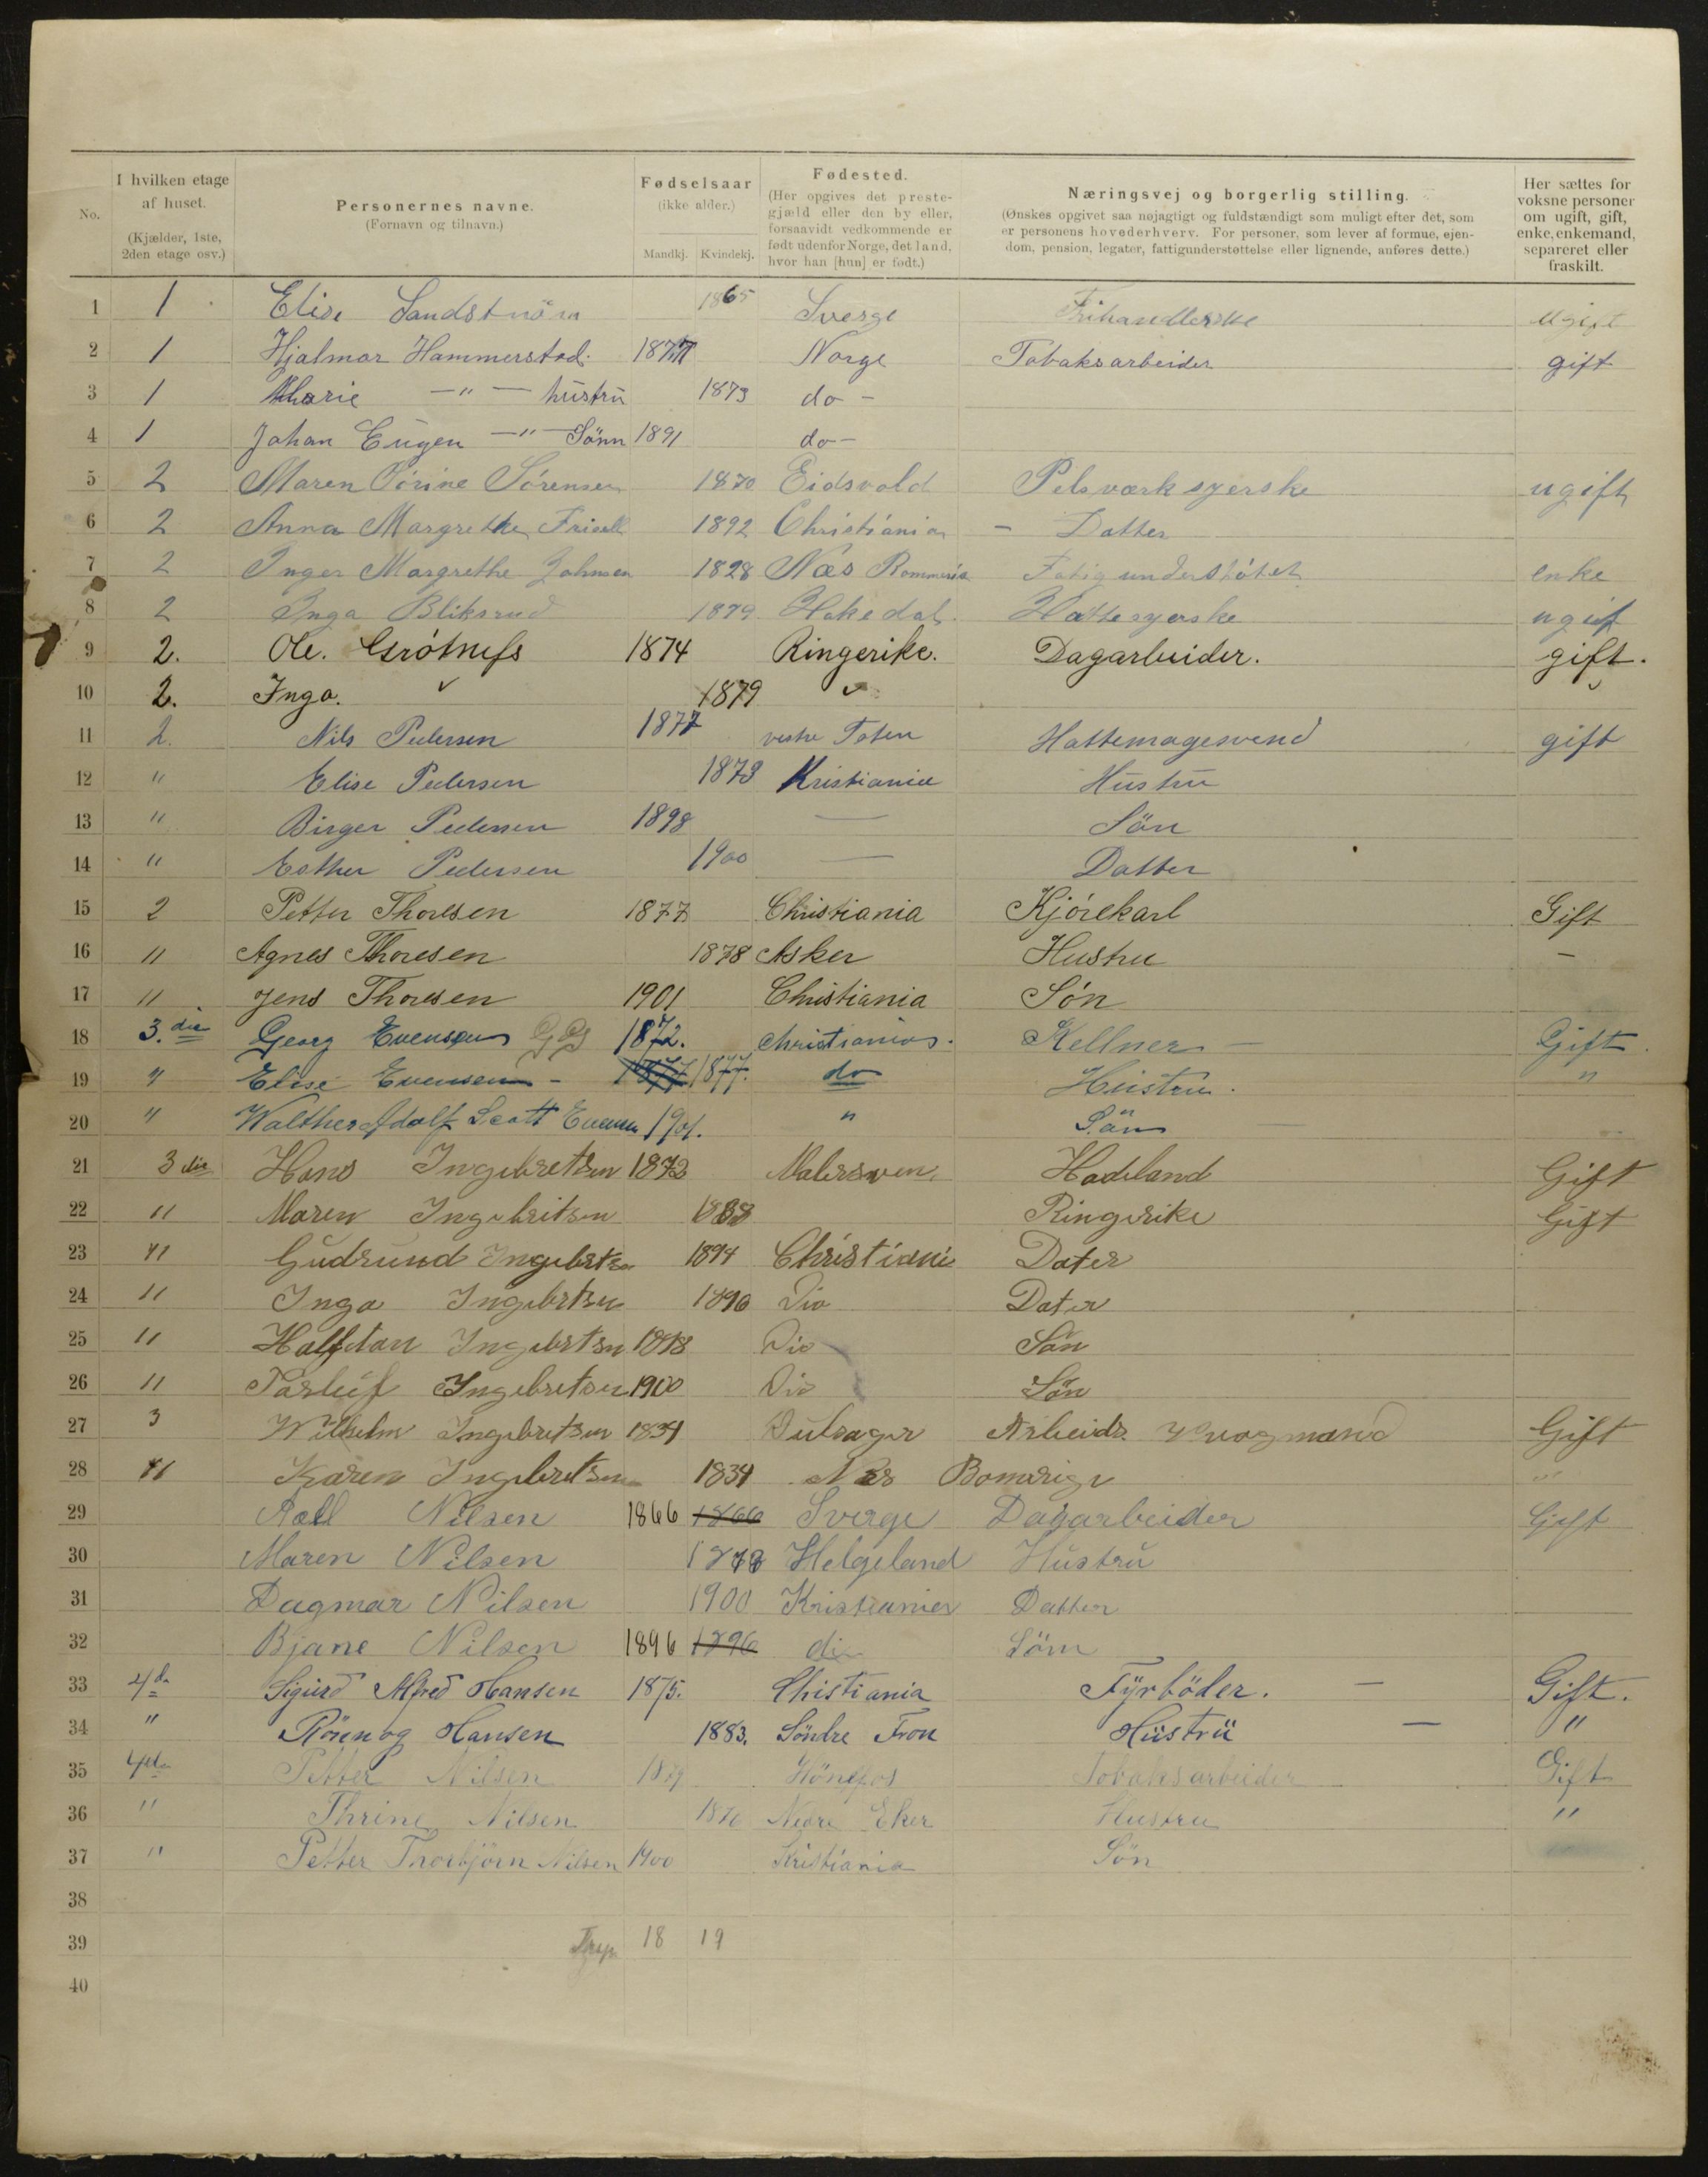 No. I hvilken etage af huset. (Kjælder, 1ste, 2den etage osv.) Personernes navne. (Fornavn og tilnavn.) Fødselsaar (ikke alder.) Mandkj. Kvindekj. Fødested. (Her opgives det prestegjæld eller den by eller, forsaavidt vedkommende er født udenfor Norge, det land, hvor han [hun] er født.) Næringsvej og borgerlig stilling. (Ønskes opgivet saa nøjagtigt og fuldstændigt som muligt efter det, som er personens hovederhverv. For personer, som lever af formue, ejendom, pension, legater, fattigunderstøttelse eller lignende, anføres dette.) Her sættes for voksne personer om ugift, gift, enke, enkemand, separeret eller fraskilt.
1 1 Elise Sandström 1865 Sverge Frihandlerske ugift
2 1 Hjalmar Hammerstad. 1871 Norge Tobaksarbeider gift
3 1 Marie —"— hustru 1873 do -
4 1 Johan Eugen —"— Sönn 1891 do -
5 2 Maren Sörine Sörensen 1870 Eidsvold Pelsværksyerske ugift
6 2 Anna Margrethe Frisell 1892 Christiania - Datter
7 2 Inger Margrethe Johnsen 1828 Næs Rommerie Fatigunderstötet enke
8 2 Inga Bliksrud 1879. Hakedal. Hattesyerske ugift
9 2. Ole. Grótnefs 1874 Ringerike. Dagarbeider. gift.
10 2. Inga. ✓ 1879 ✓ ✓
11 2. Nils Pedersen 1877 vestre Toten Hattemagesvend gift
12 " Elise Pedersen 1873 Kristiania Hustru
13 " Birger Pedersen 1898 — Sön
14 " Esther Pedersen 1900 — Datter
15 2 Petter Thoresen 1877 Christiania Kjórekarl Gift
16 " Agnes Thoresen 1878 Asker Hustru -
17 " Jens Thoresen 1901 Christiania Són
18 3.die Georg Evensen 1872. Christiania. Kellner — Gift.
19 " Elise Evensen - 1877 1877. do Hustru. "
20 " Walther Adolf Scott Evensen 1901. " Sön
21 3 die Hans Ingebretsen 1872 Malersven. Hadeland Gift
22 " Maren Ingebritsen Ringerike Gift
23 " Gudrund Ingebrtsen 1894 Christiania Dater
24 " Inga Ingebrtsen 1896 Dio Dater
25 " Halfdan Ingebrtsen 1898 Dio Sön
26 " Ingebretsen 1900 Dio Sön
27 3 Wilhelm Ingebretsen 1834 Arbeids Gift
28 " Karen Ingebretsen 1834 Næs Bomerige "
29 Nilsen 1866 1866 Sverge Dagarbeider Gift
30 Maren Nilsen 1878 Helgeland Hustru
31 Dagmar Nilsen 1900 Kristianier Datter
32 Bjane Nilsen 1896 1896 dio Sönn
33 4de Sigurd Alfred Hansen 1875. Christiania Fyrböder. — Gift.
34 " Rönnog Hansen 1883. Söndre Fron Hustru — "
35 4de Petter Nilsen 1879 Hönefos Tobaksarbeider Gift
36 " Thrine Nilsen 1876 Nedre Eker Hustru "
37 " Petter Thorbjörn Nilsen 1900 Kristiania Sön
38
39 18 19
40